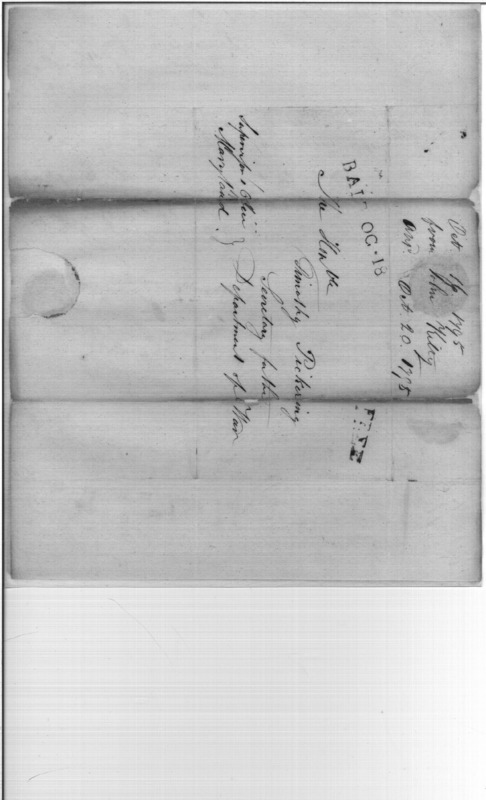 Oct. 16. 1795
from Wm Kilty
ansd. Oct. 20. 1795
BALT OC. 18
FREE
The Honble
Timothy Pickering
Secretary for the
Department of War
Supervisors Office
Maryland.